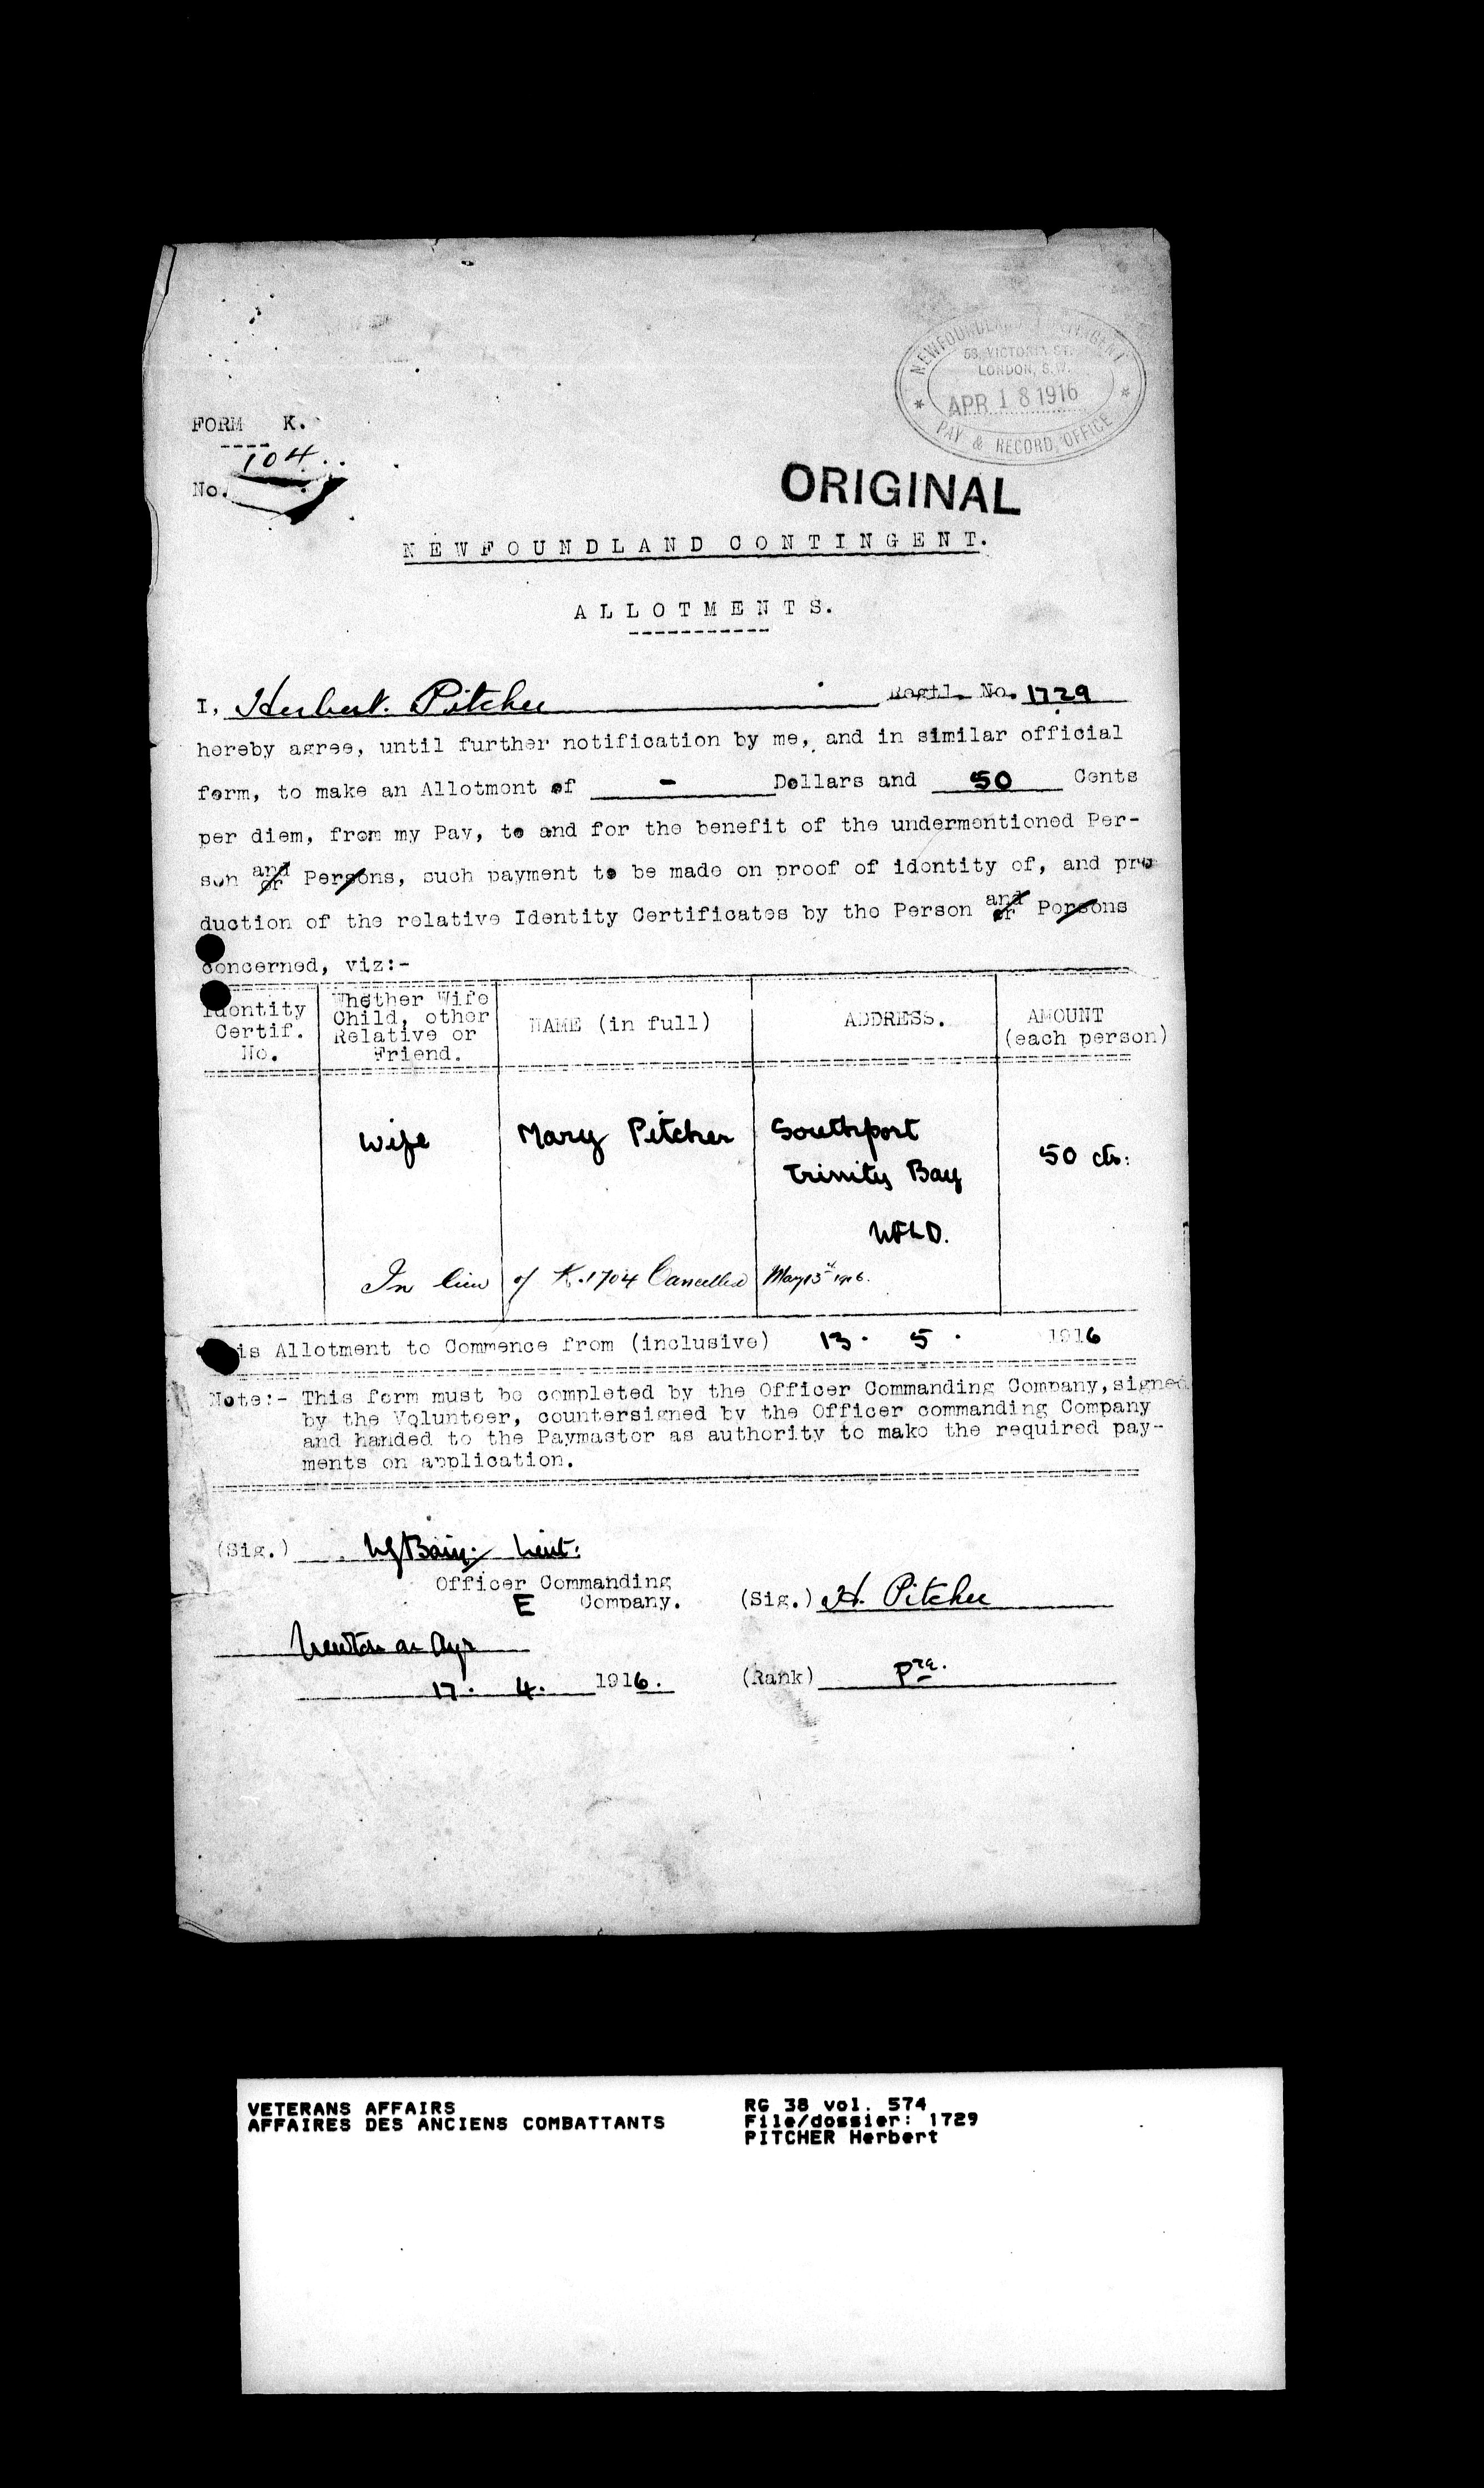 NEWFOUNDLAND CONTINGENT
58, VICTORIA ST.
LONDON, S.W.
APR 18 1916
PAY & RECORD OFFICE
FORM K.
104
No.
ORIGINAL
NEWFOUNDLAND CONTINGENT.
ALLOTMENTS.
I, Herbert. Pitcher Regtl. No. 1729
hereby agree, until further notification by me, and in similar official
form, to make an Allotment of - Dollars and 50 Cents
per diem, from my Pay, to and for the benefit of the undermentioned Per-
son and/or Persons, such payment to be made on proof of identity of, and pro
duction of the relative Identity Certificates by the Person and/or Persons
concerned, viz:-
Identity Certif. No. | Whether Wife Child, other Relative or Friend. | NAME (in full) | ADDRESS. | AMOUNT (each person)
Wife Mary Pitcher Southport 50 cts:
Trinity Bay
NFLD.
In lieu of K.1704 Cancelled May 13th 1916.
This Allotment to Commence from (inclusive) 13. 5. 1916
Note:- This form must be completed by the Officer Commanding Company, signed
by the Volunteer, countersigned by the Officer commanding Company
and handed to the Paymaster as authority to make the required pay-
ments on application.
(Sig.) Lieut:
Officer Commanding
E Company.
(Sig.) H. Pitcher
Newton on Ayr
17. 4. 1916.
(Rank) Pte.
VETERANS AFFAIRS
AFFAIRES DES ANCIENS COMBATTANTS
RG 38 vol. 574
File/dossier: 1729
PITCHER Herbert